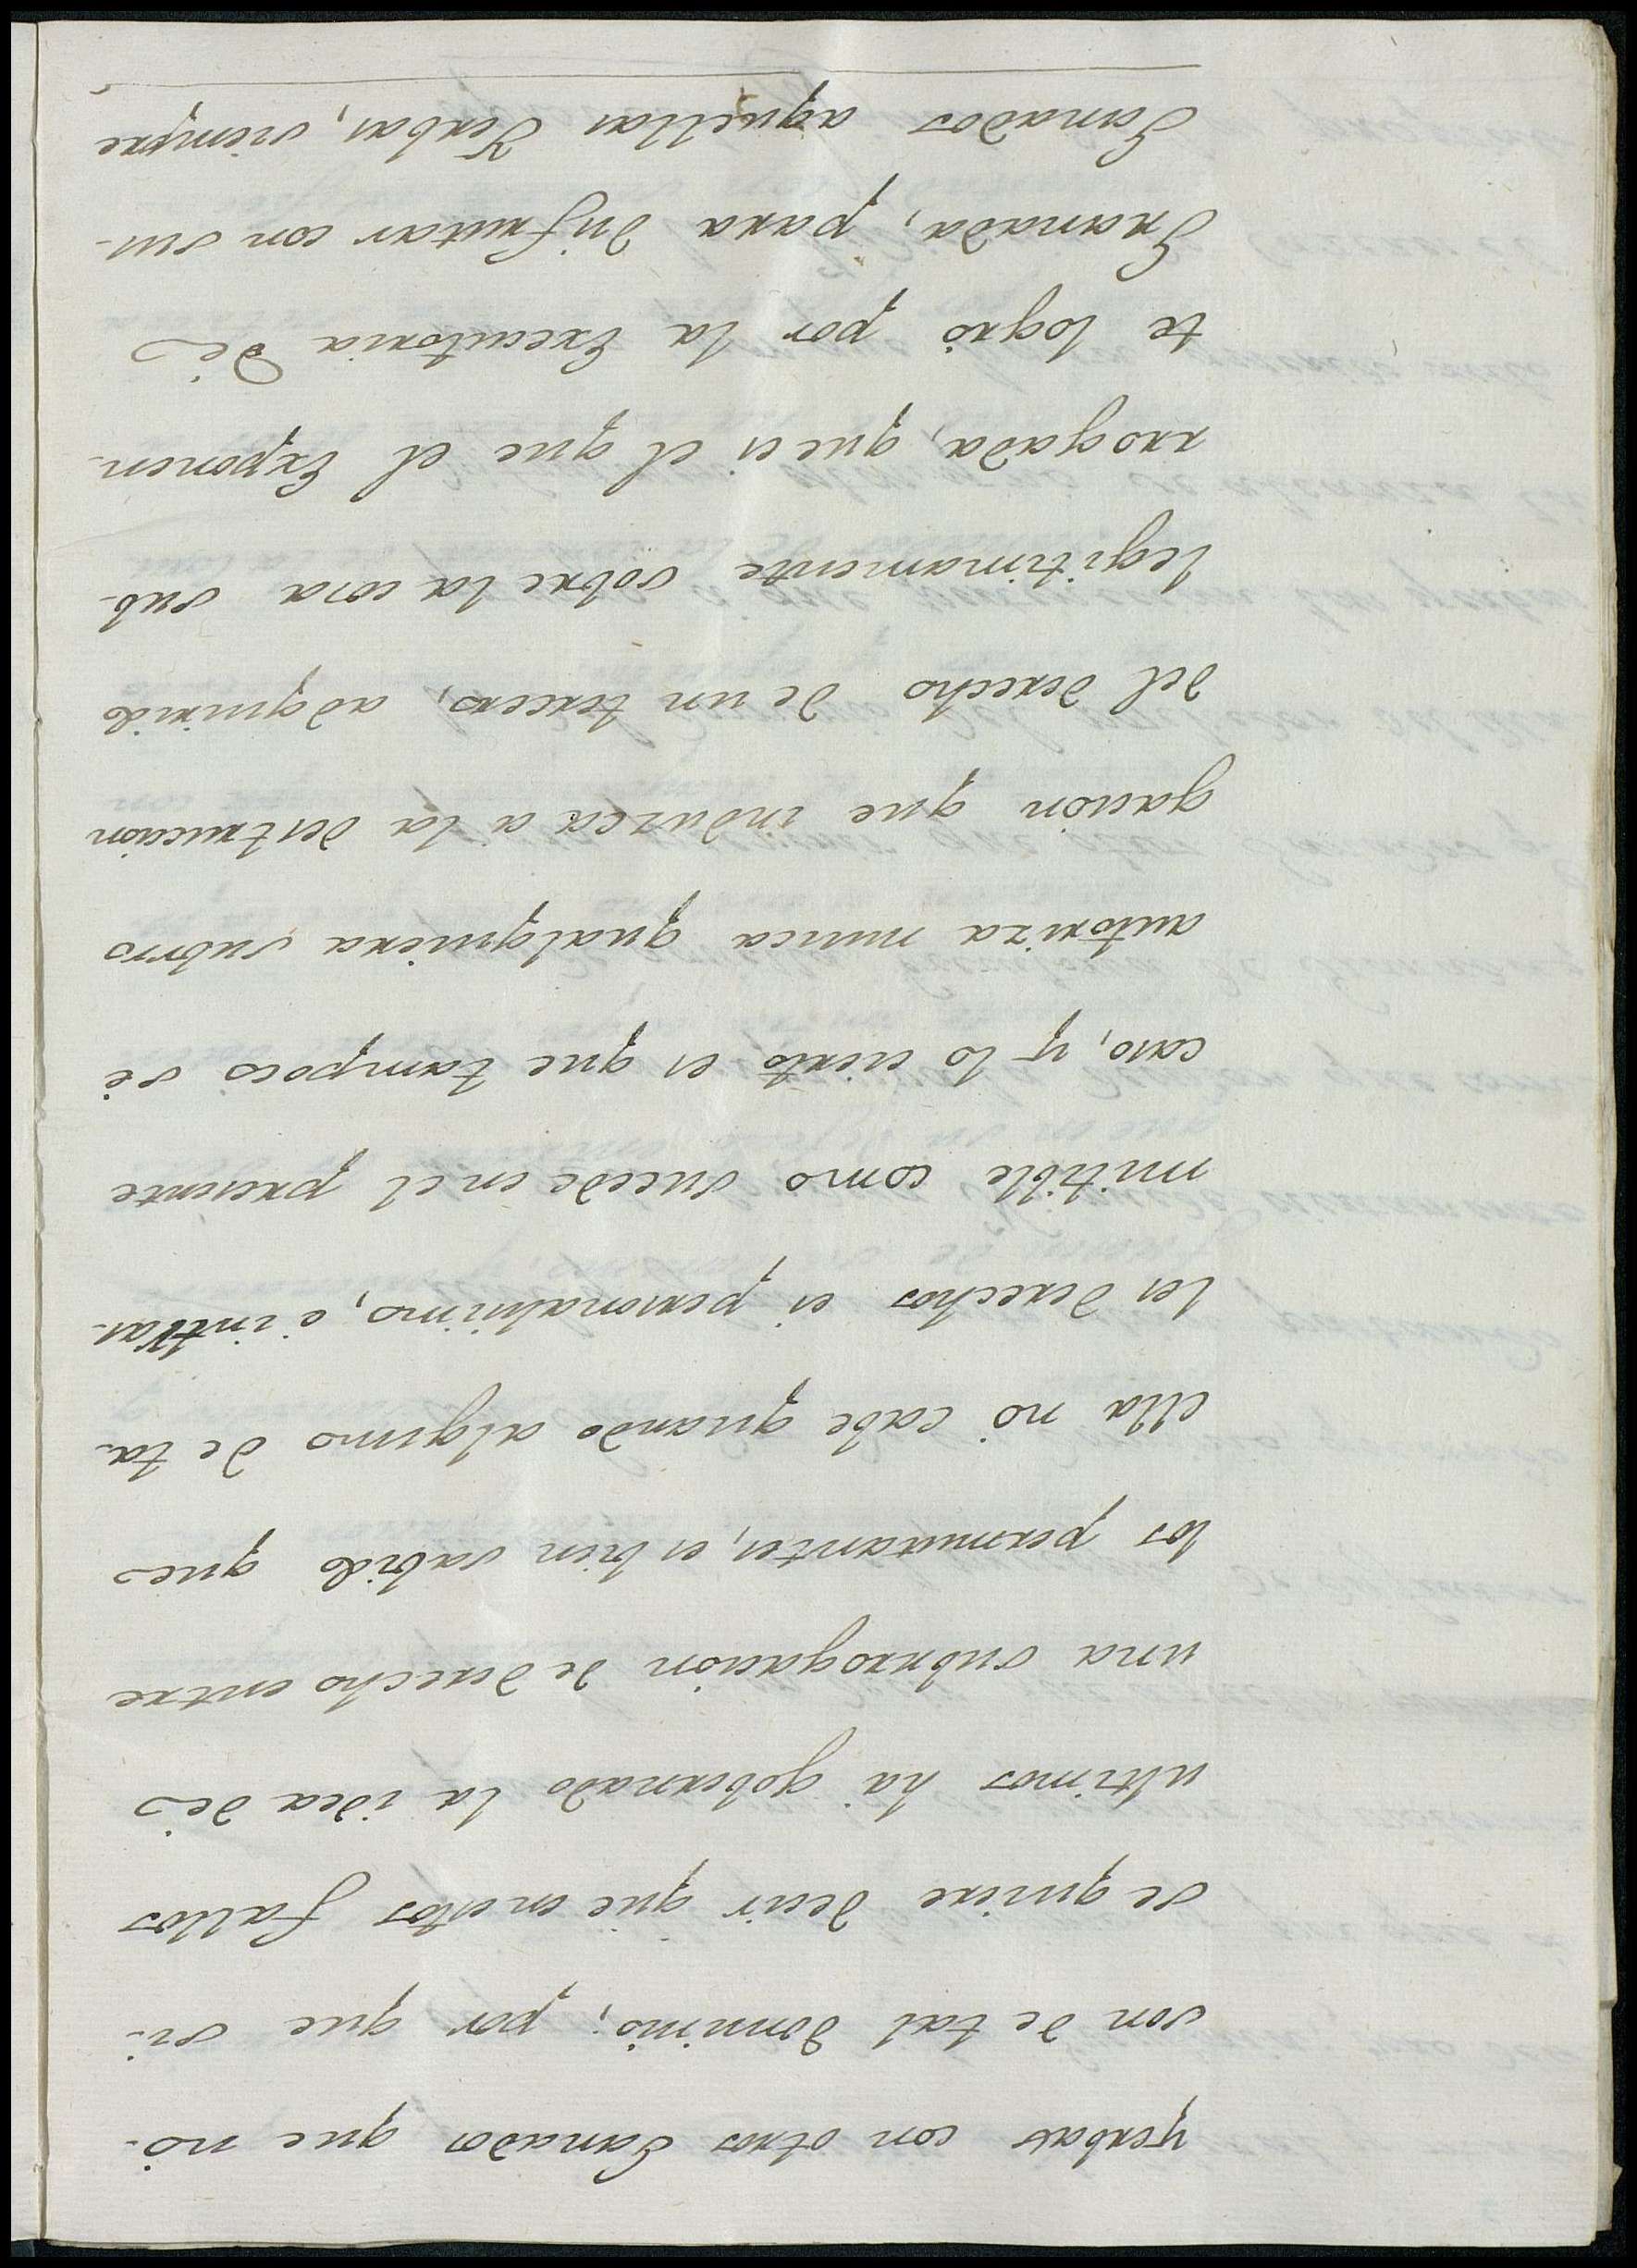 yerbas con otros Ganados que nó
son de tal dominio; por que si
se quiere decir que en estos fallos
ultimos há gobernado la idea de
una subrrogacion de derecho entre
los permutantes, es bien sabido que
ella nó cabe quando alguno de ta-
les derechos es personalisimo, é intras-
mitible como sucede en el presente
caso, y lo cierto es que tampoco sé
autoriza nunca qualquiera subrro
gacion que induzca á la destruccion
del derecho de un tercero, adquirido
legitimamente sobre la cosa sub-
rrogada, que es el que el Exponen-
te logró por la Executoria de
Granada, para disfrutar con sus
Ganados aquellas Yerbas, siempre